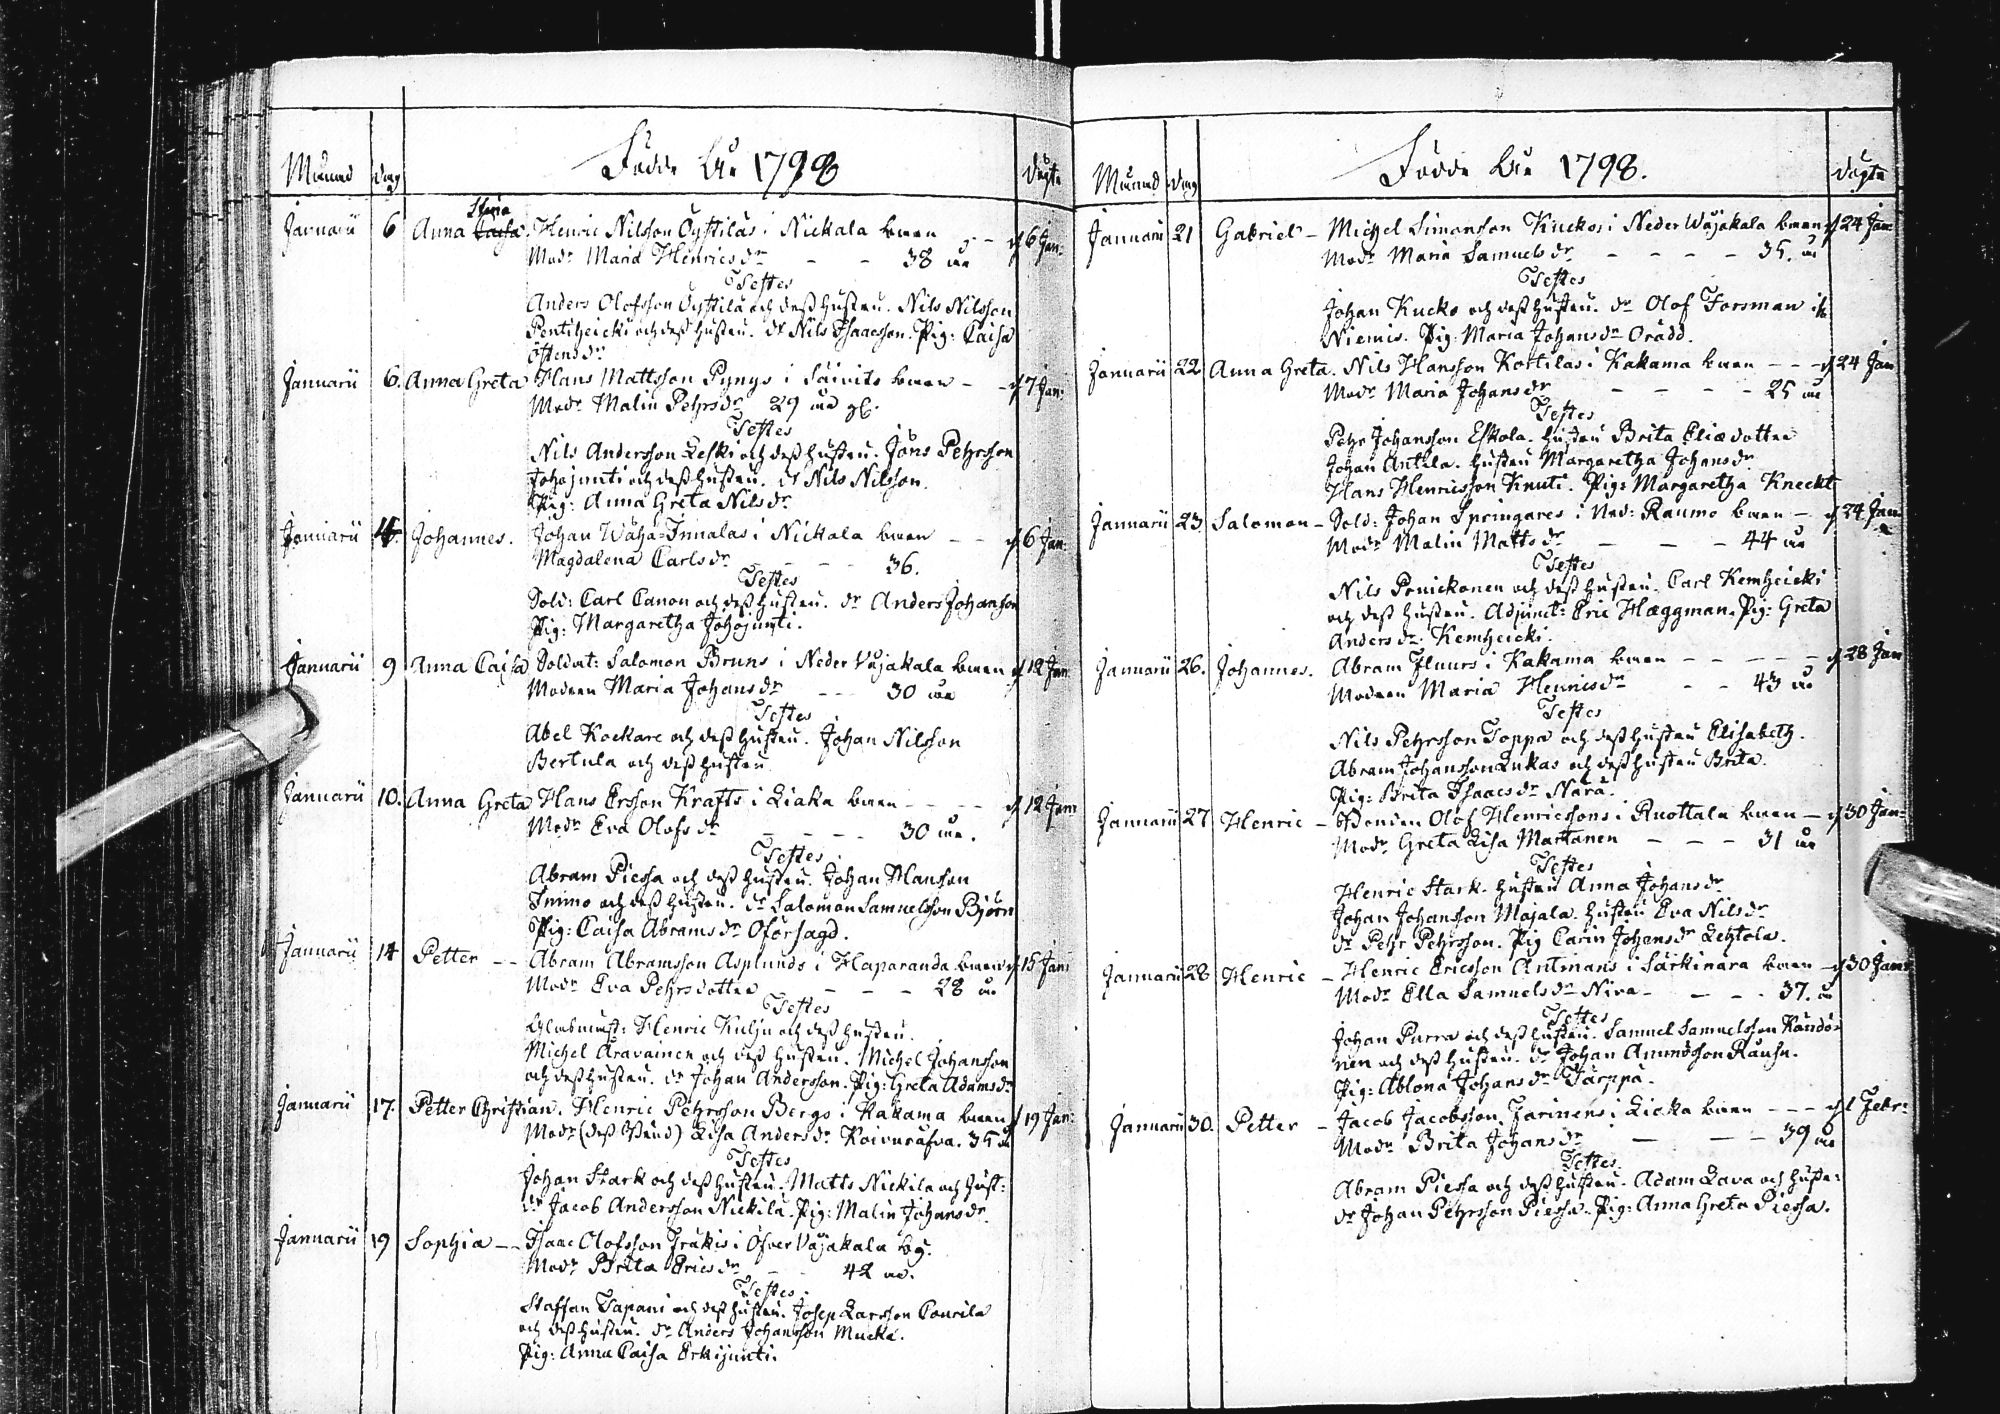 Månad dag Födde År 1798 döpte
Maria
Januarii 6 Anna Caisa. Henric Nilsson Öystilas i Nickala barn - - d 6 Jan:
Modr Maria Henricsdr - - 38 år
Testes
Anders Olofsson Öystila och dess hustru. Nils Nilsson
Pentiheicki och dess hustru. dr Nils Isaacsson. Pig: Caisa
Östensdr
Januarii 6. Anna Greta Hans Mattsson Pyngs i Säivits barn - - d 7 Jan:
Modr Malin Pehrsdr 29 år gl.
Testes
Nils Andersson Leski och dess hustru. Jöns Pehrsson
Johojunti och dess hustru. dr Nils Nilsson.
Pig: Anna Greta Nilsdr
Januarii 4. Johannes. Johan Wäha-Innalas i Nickala barn - - d 6 Jan:
Magdalena Carlsdr - - 36.
Testes
Sold: Carl Canon och dess hustru. dr Anders Johansson
Pig: Margaretha Johojunti.
Januarii 9 Anna Caisa Soldat: Salomon Bruns i Neder Vojakala barn d 12 Jan
Modren Maria Johansdr - - 30 år
Testes
Abel Kockare och dess hustru. Johan Nilsson
Bertula och dess hustru
Januarii 10. Anna Greta Hans Ersson Krafts i Liaka barn - - - - d 12 Jan
Modr Eva Olofsdr - - - - 30 år.
Testes
Abram Piessa och dess hustru. Johan Hansson
Inimo och dess hustru. dr Salomon Samuelsson Björn
Pig: Caisa Abramsdr Oförsagd.
Januarii 14 Petter - - Abram Abramsson Asplunds i Haparanda barn d 15 Jan
Modr Eva Pehrsdotter - - - 28 år
Testes
Henric Kulju och dess hustru.
Michel Aravainen och dess hustru. Michel Johansson
och dess hustru. dr Johan Andersson. Pig: Greta Adamsdr
Januarii 17. Petter Christian. Henric Pehrsson Bergs i Kakama barn d 19 Jan:
Modr (dess Änd) Lisa Andersdr Koivuräfva. 35 år
Testes
Johan Stark och dess hustru. Matts Nickila och hust:
dr Jacob Andersson Nickila. Pig: Malin Johansdr.
Januarii 19 Sophia - - Isaac Olofsson Irakis i Öfver Vojakala by.
Modr Brita Ericsdr - - 42 år.
Testes.
Staffan Tapani och dess hustru. Josep Larsson Courila
och dess hustru. dr Anders Johansson Mucka.
Pig: Anna Caisa Erkijunti.
Månad dag Födde År 1798. döpte
Januarii 21 Gabriel - Michel Simonson Kuckos i Neder Wojakala barn d 24 Jan:
Modr Maria Samuelsdr - - - - 35. år
Testes
Johan Kucko och dess hustru. dr Olof Forsman ifr
Niemis. Pig: Maria Johansdr Orädd.
Januarii 22 Anna Greta. Nils Hansson Kortilas i Kakama barn - - - d 24 Jan
Modr Maria Johansdr - - - - 25 år
Testes
Pehr Johansson Eskola. hustru Brita Eliædotter
Johan Antila. hustru Margaretha Johansdr
Hans Henricsson Knuti. Pig: Margaretha Kneckt
Januarii 23 Salomon - Sold: Johan Springares i Ned: Raumo barn - d 24 Jan
Modr Malin Mattsdr - - - 44 år
Testes
Nils Ponickonen och dess hustru. Carl Kemheicki
och dess hustru. Adjunct: Eric Hæggman. Pig: Greta
Andersdr. Kemheicki.
Januarii 26. Johannes. Abram Huurs i Kakama barn - - - - - d 28 Jan
Modren Maria Henricsdr - - 43 år
Testes
Nils Pehrsson Toppa och dess hustru Elisabeth.
Abram Johansson Lukas och dess hustru Brita.
Pig: Brita Isaacsdr Nära.
Januarii 27 Henric - Bonden Olof Henricssons i Ruottala barn - d 30 Jan:
Modr Greta Lisa Martanen - - - 31 år
Testes
Henric Stark. hustru Anna Johansdr
Johan Johansson Majala. hustru Eva Nilsdr
dr Pehr Pehrsson. Pig Carin Johansdr Lehtola.
Januarii 28 Henric - Henric Ericsson Antinans i Särkinära barn - d 30 Jan:
Modr Ella Samuelsdr Niva - - - 37. år
Testes
Johan Purra och dess hustru. Samuel Samuelsson Kändö-
nen och dess hustru. dr Johan Amundsson Rausu.
Pig: Ablona Johansdr Tärppä.
Januarii 30. Petter - Jacob Jacobsson Jarinens i Licka barn - - - d 1 Febr:
Modr Brita Johansdr - - - 39 år
Testes.
Abram Piessa och dess hustru. Adam Lava och hustr:
dr Johan Pehrsson Piessa. Pig: Anna Greta Piessa.